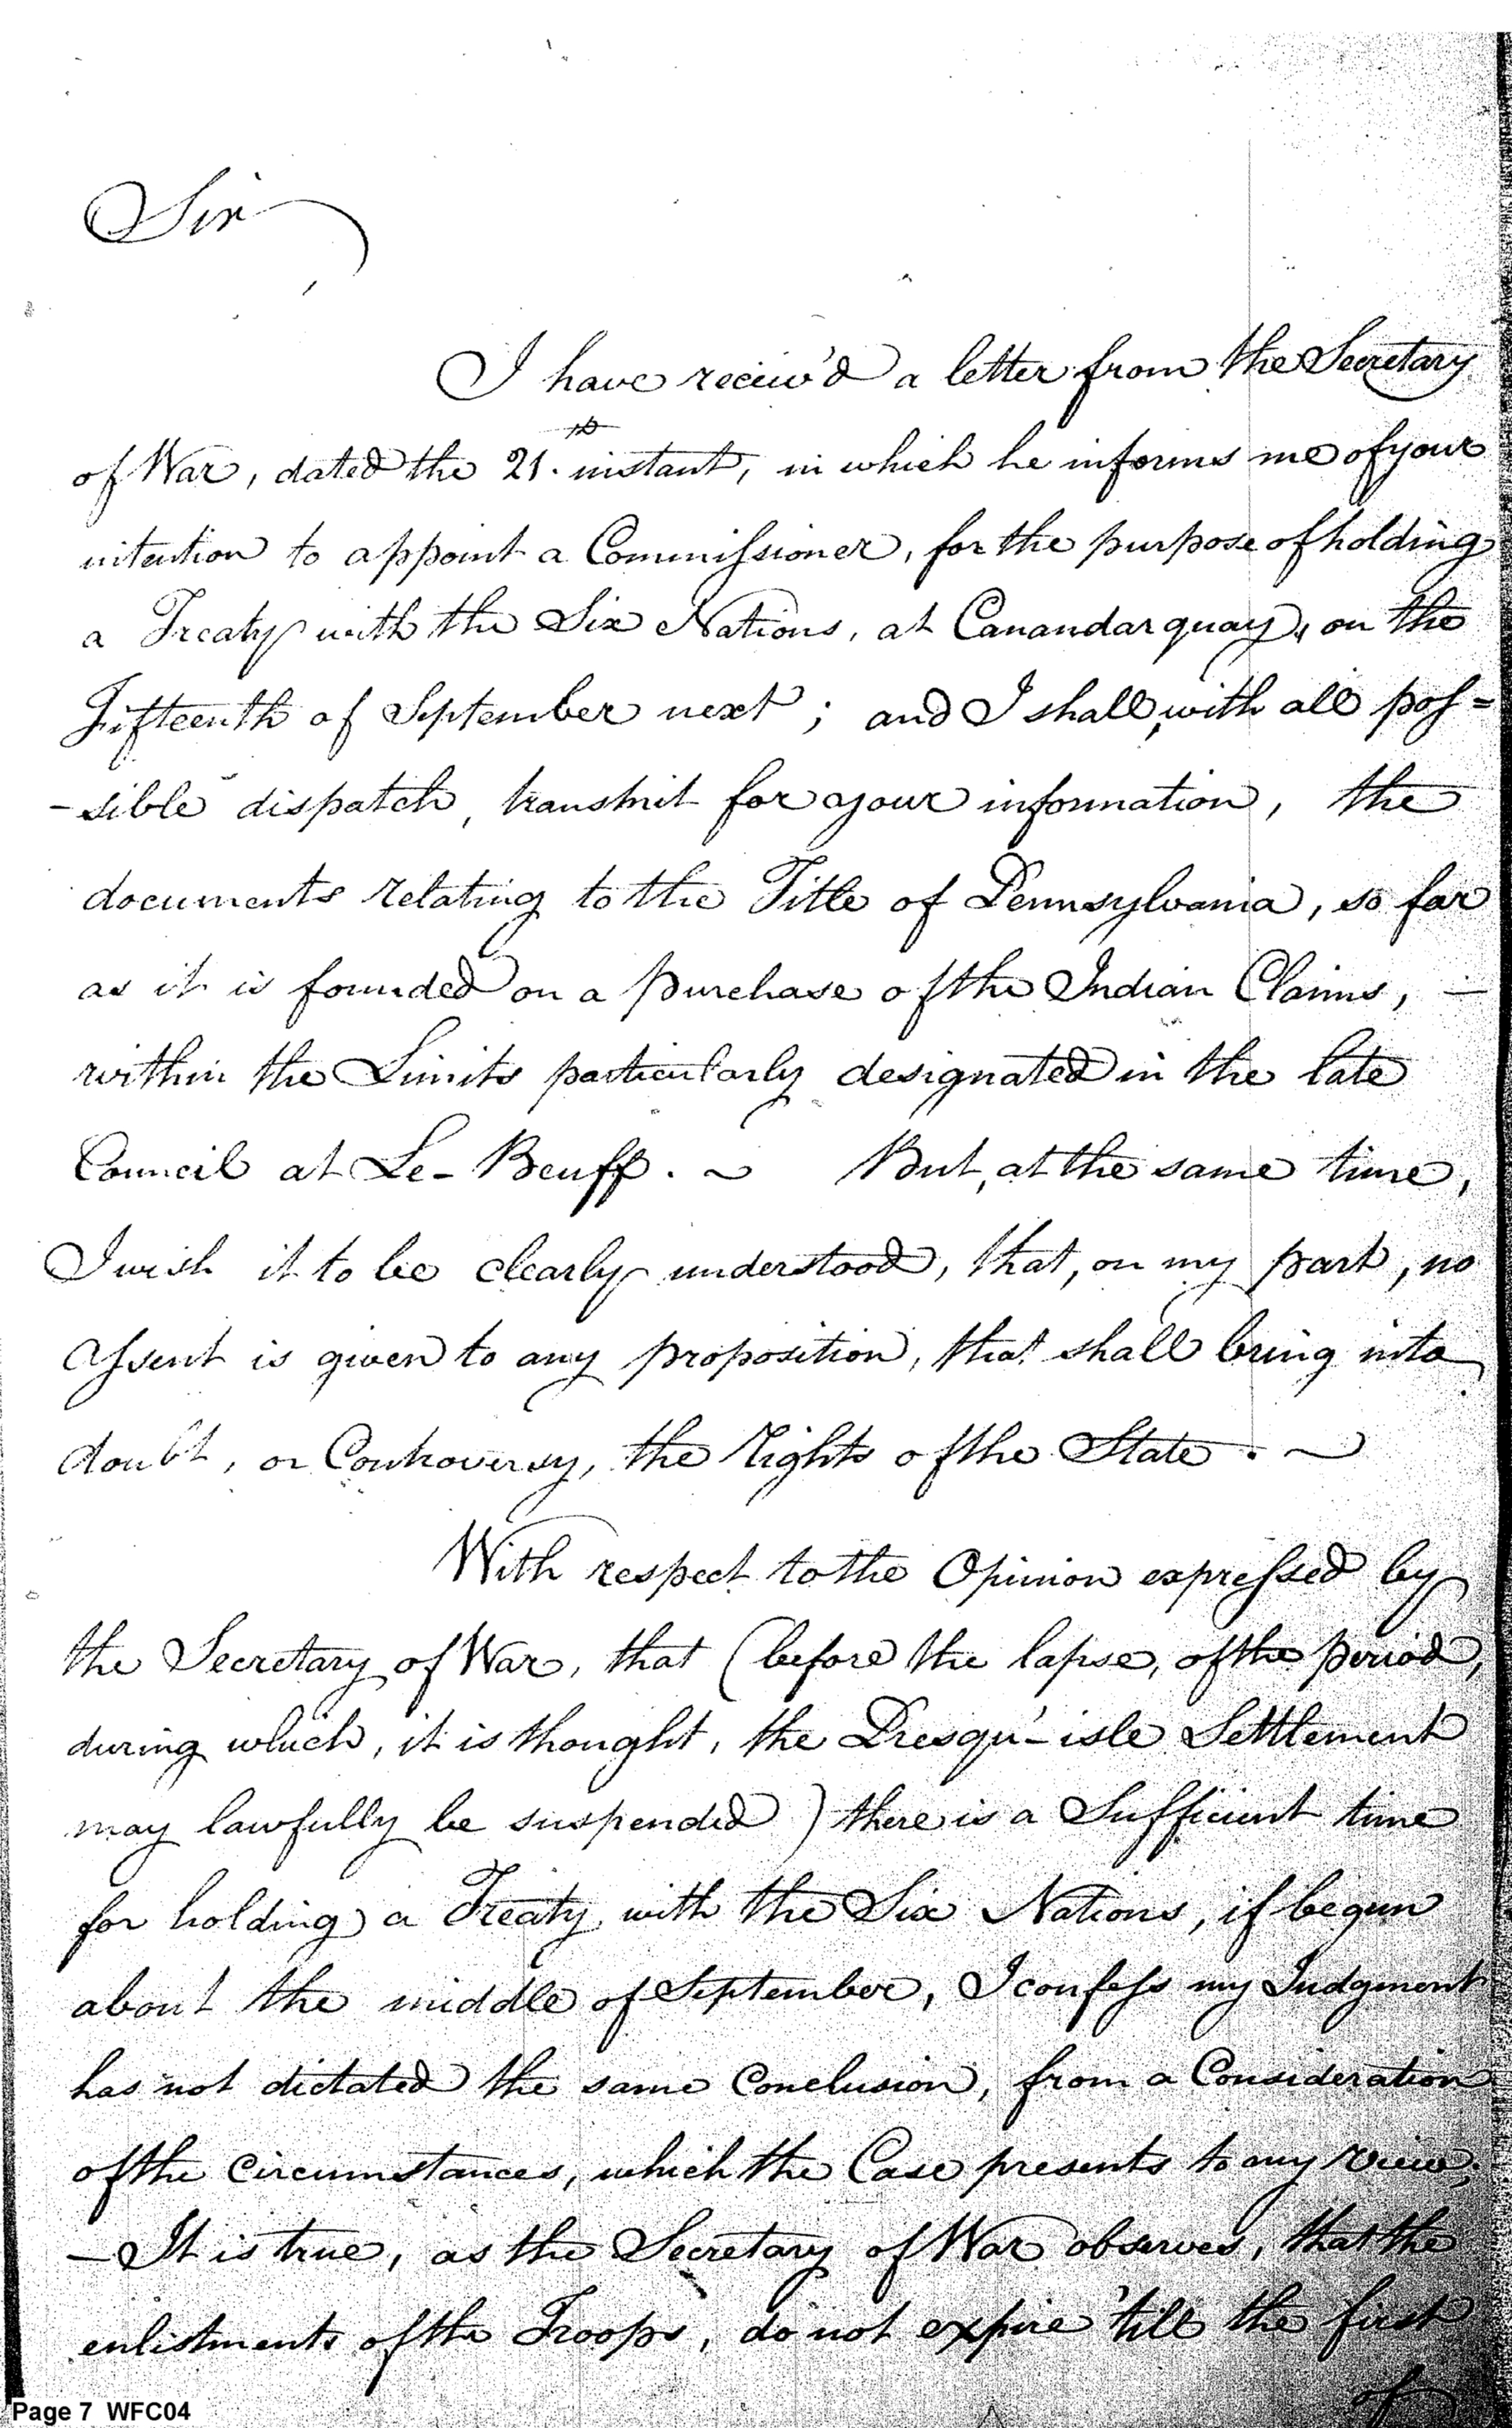 Sir
I have reciev'd a letter from the Secretary
of War, dated the 21st instant, in which he informs me of your
intention to appoint a Commissioner, for the purpose of holding
a Treaty with the Six Nations, at Canandarquay, on the
Fifteenth of September next; and I shall, with all pos=
-sible dispatch, transmit for your information, the
documents relating to the Title of Pennsylvania, so far
as it is founded on a purchase of the Indian Claims, —
within the Limits particularly designated in the late
Council at Le-Beuff. ~ But, at the same time,
I wish it to be clearly understood, that, on my part, no
assent is given to any proposition, that shall bring into
doubt, or Controversy, the Rights of the State. ~
With respect to the Opinion expressed by
the Secretary of War, that (before the lapse, of the period,
during which, it is thought, the Presqu'-isle Settlement
may lawfully be suspended) there is a Sufficient time
for holding a Treaty with the Six Nations, if begun
about the middle of September, I confess my Judgment
has not dictated the same Conclusion, from a Consideration
of the Circumstances, which the Case presents to my view;
— It is true, as the Secretary of War observes, that the
enlistments of the Troops, do not expire 'till the first
of
Page 7 WFC04